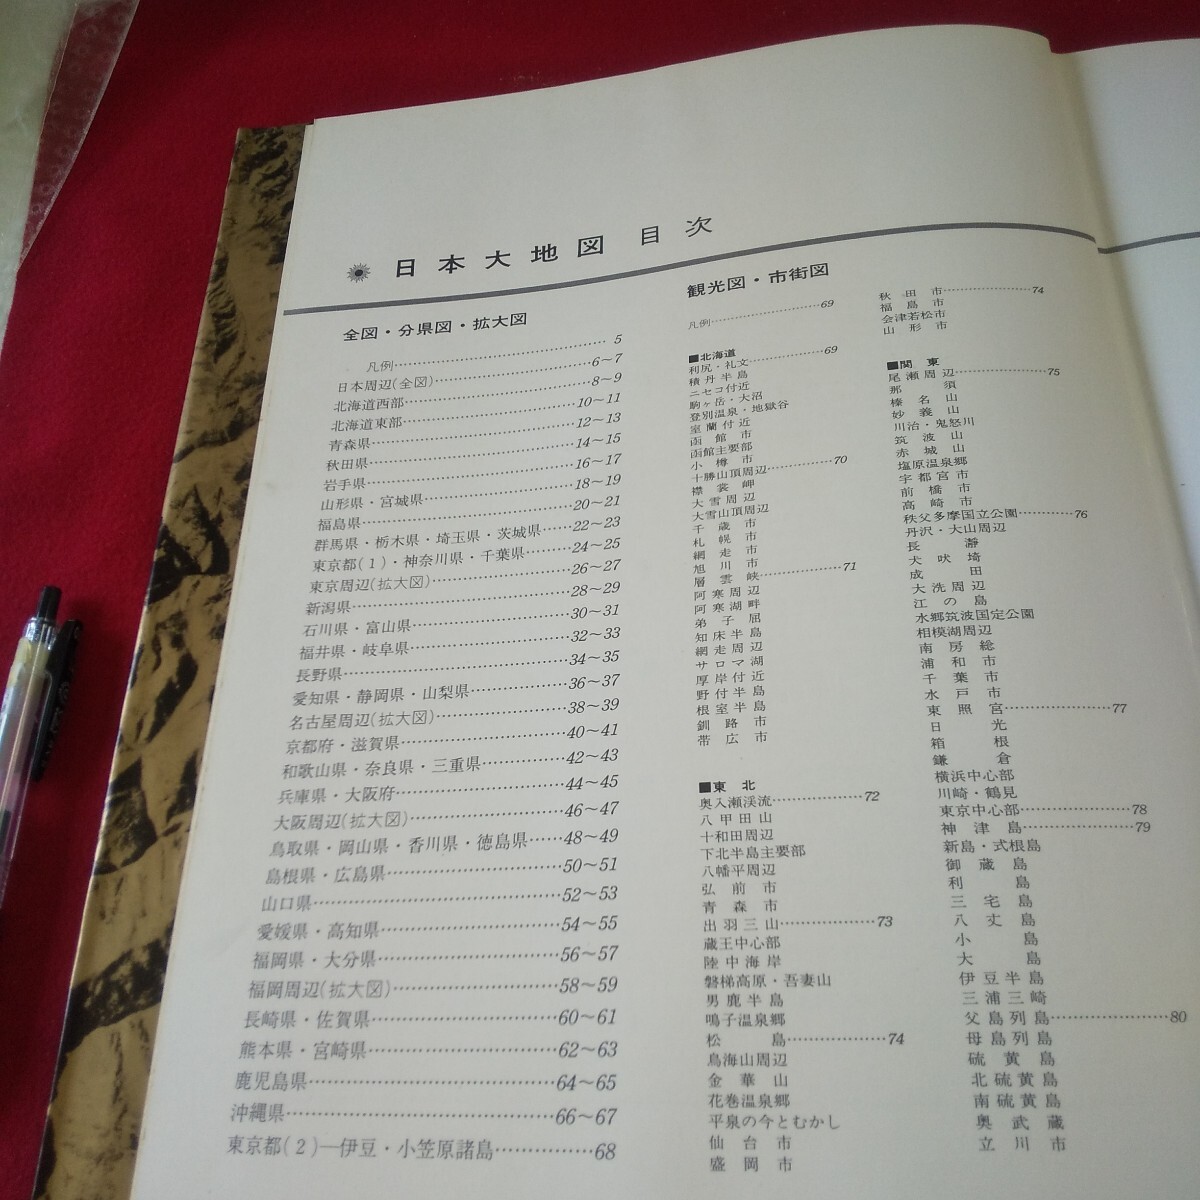 日本大地図 目次
全図・分県図・拡大図
凡例 5
日本周辺(全図) 6〜7
北海道西部 8〜9
北海道東部 10〜11
青森県 12〜13
秋田県 14〜15
岩手県 16〜17
山形県・宮城県 18〜19
福島県 20〜21
群馬県・栃木県・埼玉県・茨城県 22〜23
東京都(1)・神奈川県・千葉県 24〜25
東京周辺(拡大図) 26〜27
新潟県 28〜29
石川県・富山県 30〜31
福井県・岐阜県 32〜33
長野県 34〜35
愛知県・静岡県・山梨県 36〜37
名古屋周辺(拡大図) 38〜39
京都府・滋賀県 40〜41
和歌山県・奈良県・三重県 42〜43
兵庫県・大阪府 44〜45
大阪周辺(拡大図) 46〜47
鳥取県・岡山県・香川県・徳島県 48〜49
島根県・広島県 50〜51
山口県 52〜53
愛媛県・高知県 54〜55
福岡県・大分県 56〜57
福岡周辺(拡大図) 58〜59
長崎県・佐賀県 60〜61
熊本県・宮崎県 62〜63
鹿児島県 64〜65
沖縄県 66〜67
東京都(2)―伊豆・小笠原諸島 68
観光図・市街図
凡例 69
■北海道
利尻・礼文 69
積丹半島
ニセコ付近
駒ヶ岳・大沼
登別温泉・地獄谷
室蘭付近
函館市
函館主要部
小樽市
十勝山頂周辺 70
襟裳岬
大雪周辺
大雪山頂周辺
千歳市
札幌市
網走市
旭川市
層雲峡 71
阿寒周辺
阿寒湖畔
弟子屈
知床半島
網走周辺
サロマ湖
厚岸付近
野付半島
根室半島
釧路市
帯広市
■東北
奥入瀬渓流 72
八甲田山
十和田周辺
下北半島主要部
八幡平周辺
弘前市
青森市
出羽三山 73
蔵王中心部
陸中海岸
磐梯高原・吾妻山
男鹿半島
鳴子温泉郷
松島 74
鳥海山周辺
金華山
花巻温泉郷
平泉の今とむかし
仙台市
盛岡市
秋田市 74
福島市
会津若松市
山形市
■関東
尾瀬周辺 75
那須
榛名山
妙義山
川治・鬼怒川
筑波山
赤城山
塩原温泉郷
宇都宮市
前橋市
高崎市
秩父多摩国立公園 76
丹沢・大山周辺
長瀞
犬吠埼
成田
大洗周辺
江の島
水郷筑波国定公園
相模湖周辺
南房総
浦和市
千葉市
水戸市
東照宮 77
日光
箱根
鎌倉
横浜中心部
川崎・鶴見
東京中心部 78
神津島 79
新島・式根島
御蔵島
利島
三宅島
八丈島
小島
大島
伊豆半島
三浦三崎
父島列島 80
母島列島
硫黄島
北硫黄島
南硫黄島
奥武蔵
立川市